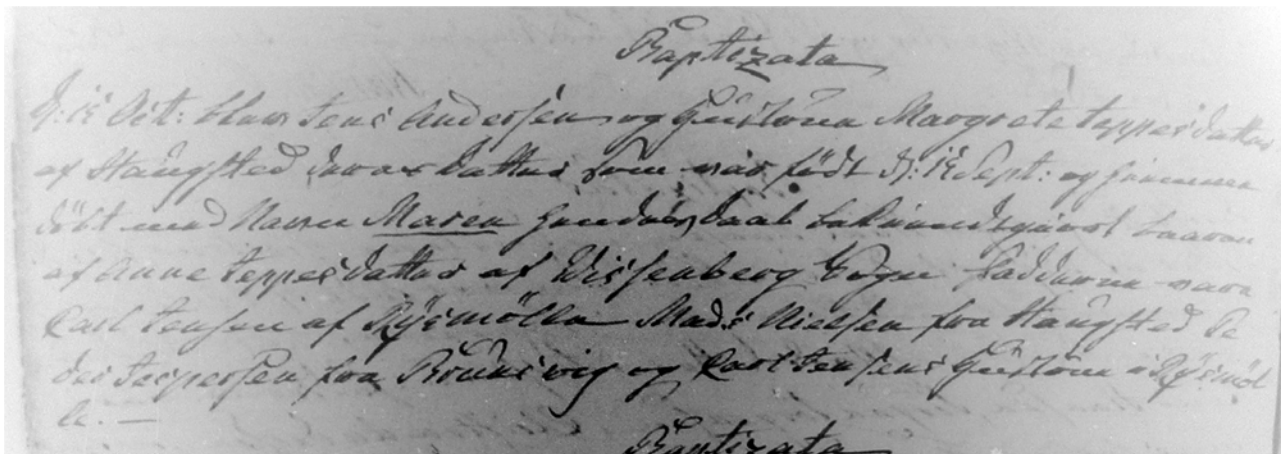 Baptizata
Oct: blev Jens Andersen og Hustrue Margrete Jeppesdatter
af Haugsted deres datter som var født d: Sept: og hiemme
döbt med Navn Maren hendes daab bekiendtgiort baaren
af Anne Jeppesdatter af Wissenberg Sogn fadderne vare
Carl Jensen af Rÿsmölle Mads Nielsen fra Haugsted Pe
der Jespersen fra og Carl Jensens Hustrue i Rÿsmöl
le. —
Baptizata